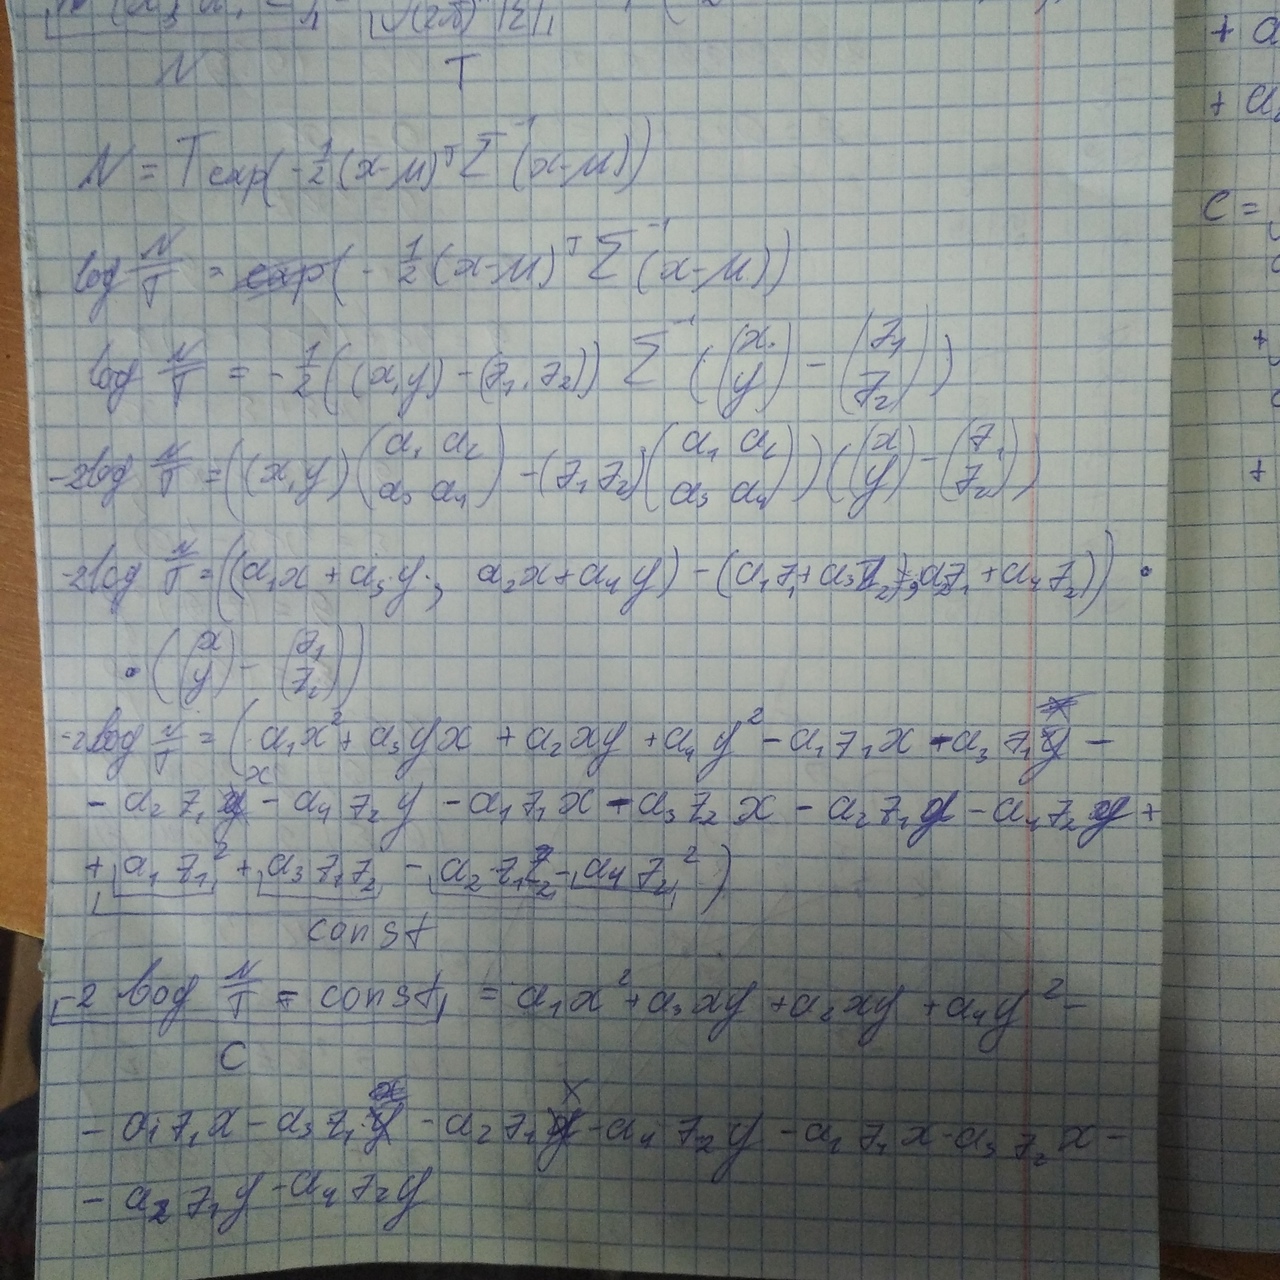 N T
N = T exp(-1/2 (x-μ)^T Σ^-1 (x-μ))
log N/T = (-1/2 (x-μ)^T Σ^-1 (x-μ))
log N/T = -1/2 ((x,y) - (z₁, z₂)) Σ^-1 ((x y) - (z₁ z₂))
-2log N/T = ((x,y) (a₁ a₂ a₃ a₄) - (z₁ z₂) (a₁ a₂ a₃ a₄)) ((x y) - (z₁ z₂))
-2log N/T = ((a₁x + a₃y; a₂x + a₄y) - (a₁z₁ + a₃z₂; a₂z₁ + a₄z₂)) •
• ((x y) - (z₁ z₂))
-2log N/T = (a₁x² + a₃yx + a₂xy + a₄y² - a₁z₁x - a₃z₁y -
- a₂z₁x - a₄z₂y - a₁z₁x - a₃z₂x - a₂z₁y - a₄z₂y +
+ a₁z₁² + a₃z₁z₂ - a₂z₁z₂ - a₄z₂²)
const
-2 log N/T - const = a₁x² + a₃xy + a₂xy + a₄y² -
C
- a₁z₁x - a₃z₁y - a₂z₁x - a₄z₂y - a₁z₁x - a₃z₂x -
- a₂z₁y - a₄z₂y
C =